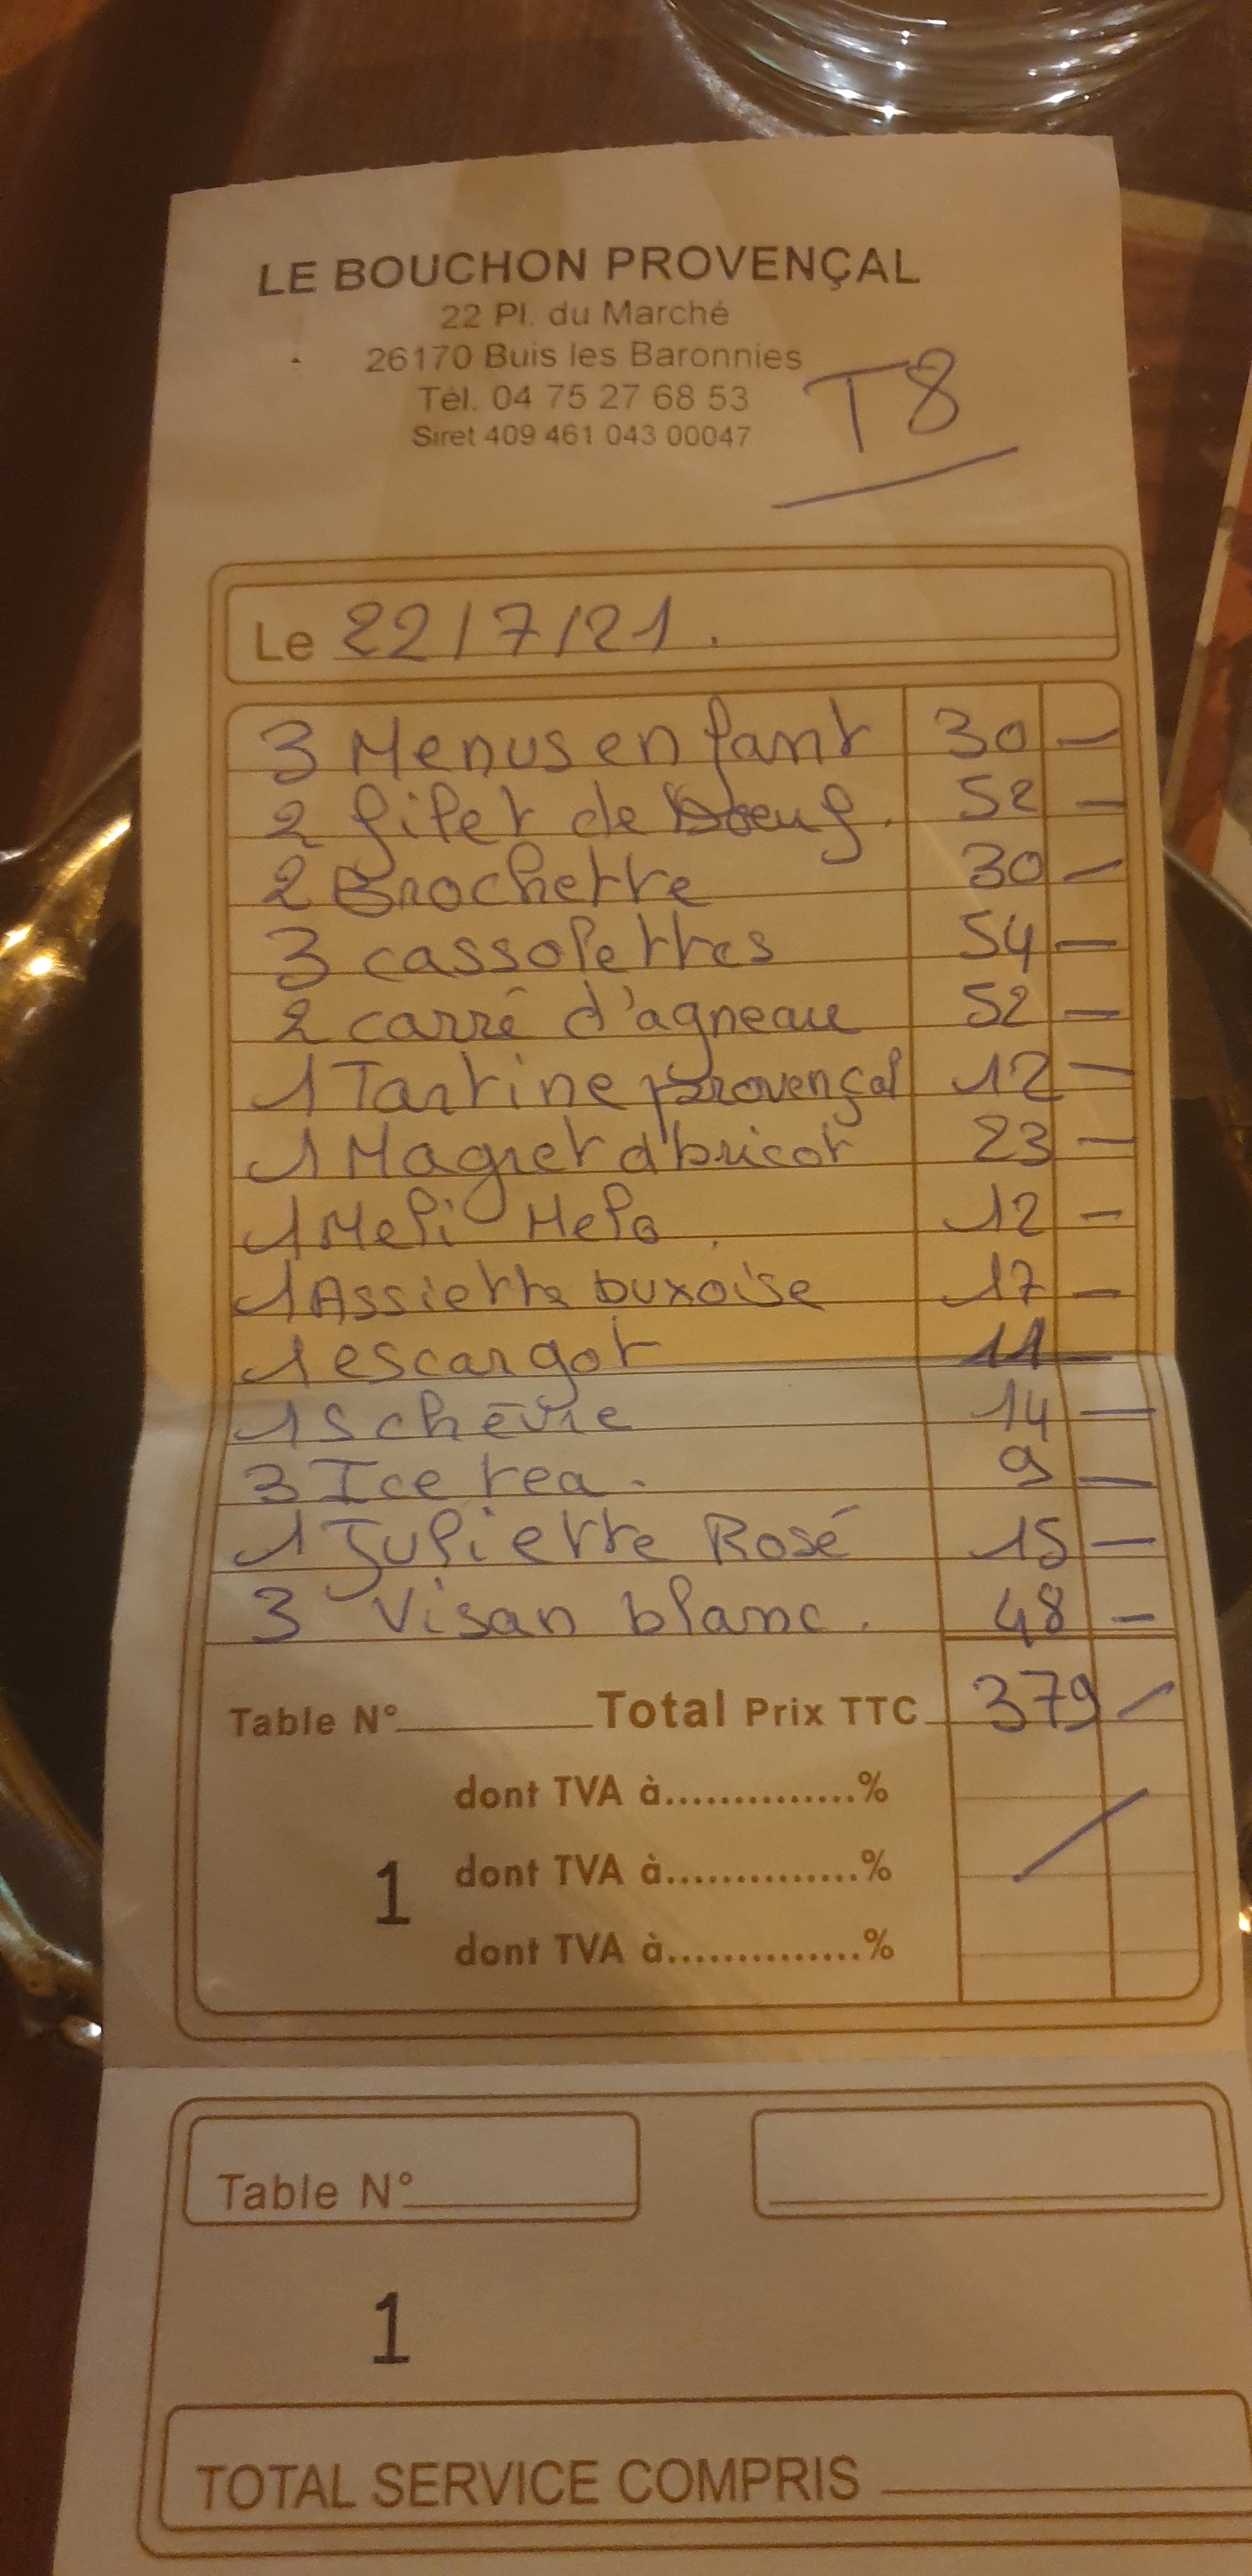 LE BOUCHON PROVENÇAL
22 Pl. du Marché
26170 Buis les Baronnies
Tél. 04 75 27 68 53
Siret 409 461 043 00047
T8
Le 22/7/21.
3 Menus enfant 30 —
2 filet de boeuf. 52 —
2 Brochette 30 —
3 cassolettes 54 —
2 carré d'agneau 52 —
1 Tartine provençal 12 —
1 Magret abricot 23 —
1 Meli Melo. 12 —
1 Assiette buxoise 17 —
1 escargot 11 —
1 S chèvre 14 —
3 Ice tea. 9 —
1 Juliette Rosé 15 —
3 Visan blanc. 48 —
Table N° Total Prix TTC 379 —
dont TVA à..............%
1 dont TVA à..............%
dont TVA à..............%
Table N°
1
TOTAL SERVICE COMPRIS